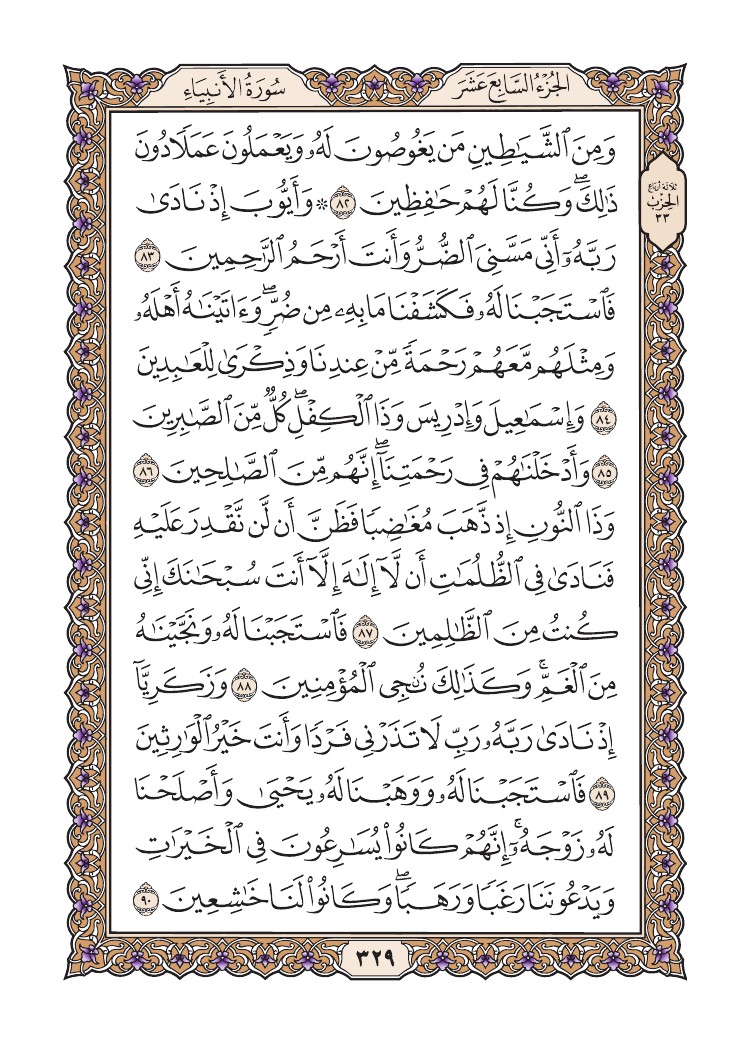 الجُزْءُ السَّابِعَ عَشَرَ
سُورَةُ الأَنبِيَاءِ
وَمِنَ ٱلشَّيَٰطِينِ مَن يَغُوصُونَ لَهُۥ وَيَعْمَلُونَ عَمَلًا دُونَ
ذَٰلِكَۖ وَكُنَّا لَهُمْ حَٰفِظِينَ ٨٢ ۞ وَأَيُّوبَ إِذْ نَادَىٰ
رَبَّهُۥٓ أَنِّي مَسَّنِيَ ٱلضُّرُّ وَأَنتَ أَرْحَمُ ٱلرَّٰحِمِينَ ٨٣
فَٱسْتَجَبْنَا لَهُۥ فَكَشَفْنَا مَا بِهِۦ مِن ضُرّٖۖ وَءَاتَيْنَٰهُ أَهْلَهُۥ
وَمِثْلَهُم مَّعَهُمْ رَحْمَةٗ مِّنْ عِندِنَا وَذِكْرَىٰ لِلْعَٰبِدِينَ
٨٤ وَإِسْمَٰعِيلَ وَإِدْرِيسَ وَذَا ٱلْكِفْلِۖ كُلّٞ مِّنَ ٱلصَّٰبِرِينَ
٨٥ وَأَدْخَلْنَٰهُمْ فِي رَحْمَتِنَآۖ إِنَّهُم مِّنَ ٱلصَّٰلِحِينَ ٨٦
وَذَا ٱلنُّونِ إِذ ذَّهَبَ مُغَٰضِبٗا فَظَنَّ أَن لَّن نَّقْدِرَ عَلَيْهِ
فَنَادَىٰ فِي ٱلظُّلُمَٰتِ أَن لَّآ إِلَٰهَ إِلَّآ أَنتَ سُبْحَٰنَكَ إِنِّي
كُنتُ مِنَ ٱلظَّٰلِمِينَ ٨٧ فَٱسْتَجَبْنَا لَهُۥ وَنَجَّيْنَٰهُ
مِنَ ٱلْغَمِّۚ وَكَذَٰلِكَ نُـۨجِي ٱلْمُؤْمِنِينَ ٨٨ وَزَكَرِيَّآ
إِذْ نَادَىٰ رَبَّهُۥ رَبِّ لَا تَذَرْنِي فَرْدٗا وَأَنتَ خَيْرُ ٱلْوَٰرِثِينَ
٨٩ فَٱسْتَجَبْنَا لَهُۥ وَوَهَبْنَا لَهُۥ يَحْيَىٰ وَأَصْلَحْنَا
لَهُۥ زَوْجَهُۥٓۚ إِنَّهُمْ كَانُواْ يُسَٰرِعُونَ فِي ٱلْخَيْرَٰتِ
وَيَدْعُونَنَا رَغَبٗا وَرَهَبٗاۖ وَكَانُواْ لَنَا خَٰشِعِينَ ٩٠
ثلاثة أرباع
الحزب
٣٣
٣٢٩